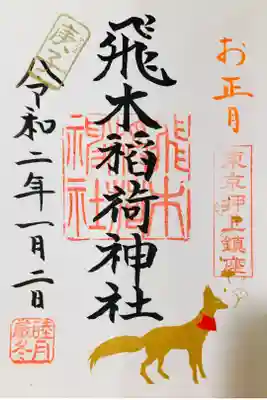 お正月
東京押上鎮座
飛木稲荷神社
飛木
稲荷
神社
令和二年一月二日
睦月